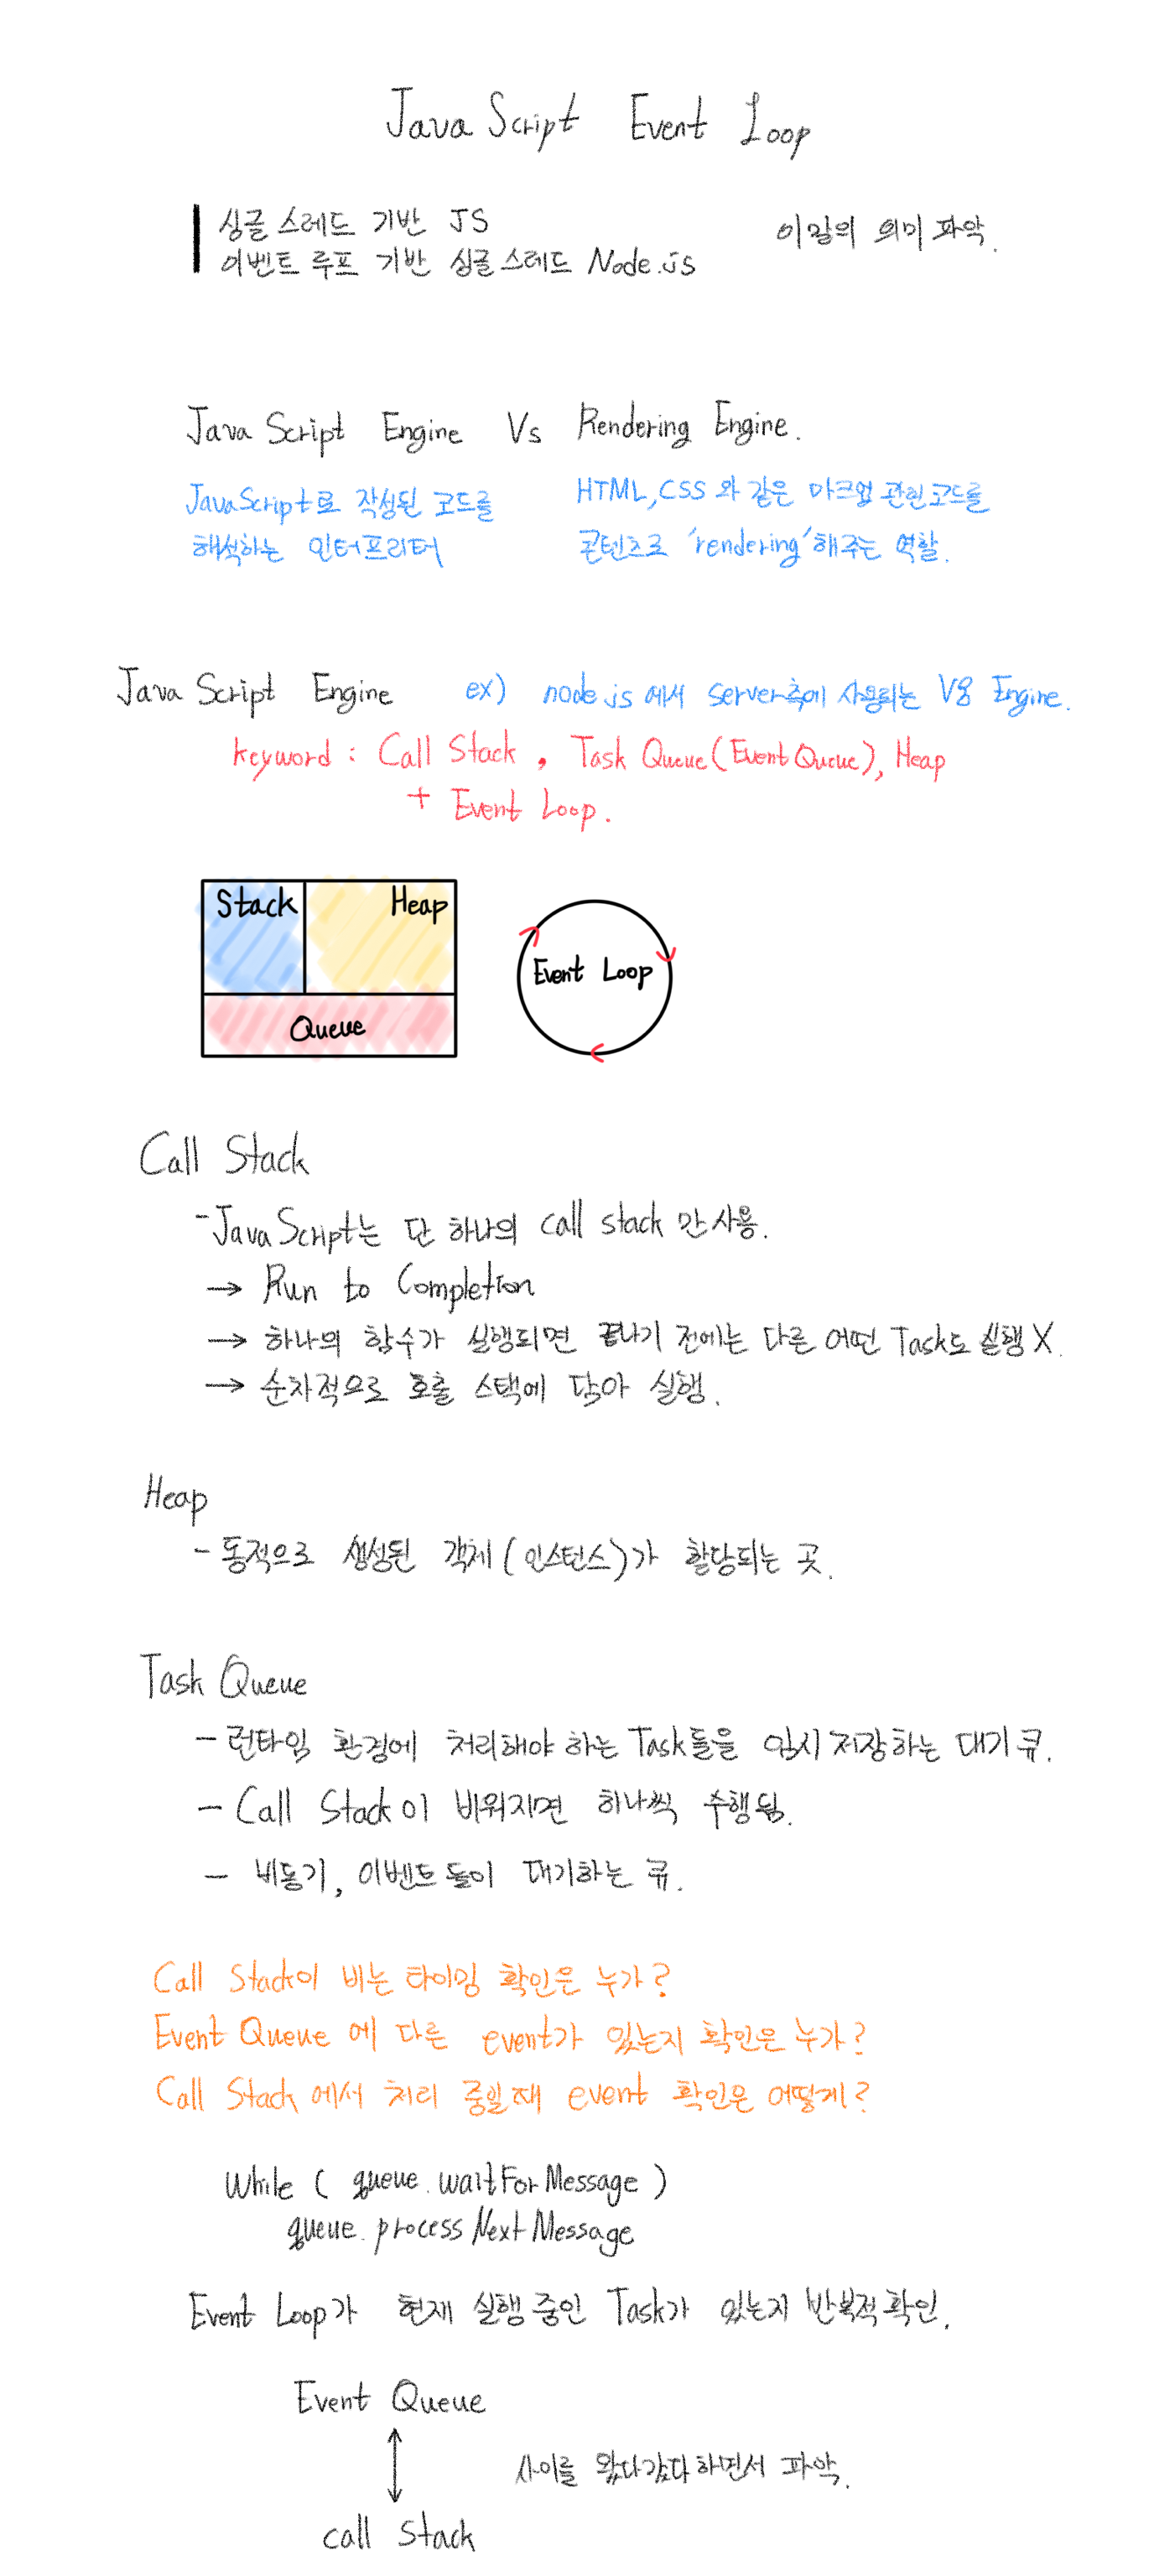 JavaScript Event Loop
싱글 스레드 기반 JS
이벤트 루프 기반 싱글 스레드 Node.js
이 말의 의미 파악.
JavaScript Engine Vs Rendering Engine.
JavaScript로 작성된 코드를
해석하는 인터프리터
HTML, CSS 와 같은 마크업 관련 코드를
콘텐츠로 'rendering'해주는 역할.
JavaScript Engine ex) node.js 에서 server측에 사용되는 V8 Engine.
keyword : Call Stack, Task Queue(Event Queue), Heap
+ Event Loop.
Stack Heap
Event Loop
Queue
Call Stack
- JavaScript는 단 하나의 call stack 만 사용.
→ Run to Completion
→ 하나의 함수가 실행되면 끝나기 전에는 다른 어떤 Task도 실행 X.
→ 순차적으로 호출 스택에 담아 실행.
Heap
- 동적으로 생성된 객체(인스턴스)가 할당되는 곳.
Task Queue
- 런타임 환경에 처리해야 하는 Task들을 임시 저장하는 대기 큐.
- Call Stack이 비워지면 하나씩 수행됨.
- 비동기, 이벤트들이 대기하는 큐.
Call Stack이 비는 타이밍 확인은 누가?
Event Queue 에 다른 event가 있는지 확인은 누가?
Call Stack 에서 처리 중일때 event 확인은 어떻게?
While ( queue.waitForMessage )
queue.processNextMessage
Event Loop가 현재 실행 중인 Task가 있는지 반복적 확인.
Event Queue
↕
사이를 왔다갔다 하면서 파악.
call stack